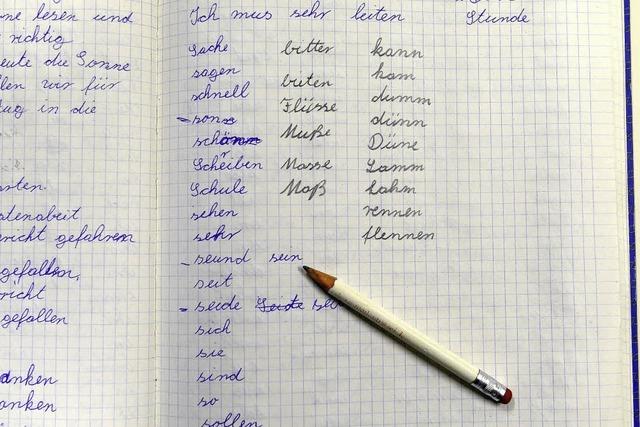 ne lesen und
richtig
eute die Sonne
llen wir für
tag in die
sten.
stenarbeit
richt gefahren
gefallen,
richt
gefallen
anken
anken
Ich mus sehr leiten Stunde
Sache bitter kann
sagen bieten kam
schnell Flüsse dumm
sons dünn
schönn Muße Düne
Schreiben Masse Lamm
Schule Maß lahm
sehen rennen
sehr flennen
seund sein
seit
seide Seite sei
sich
sie
sind
so
sollen